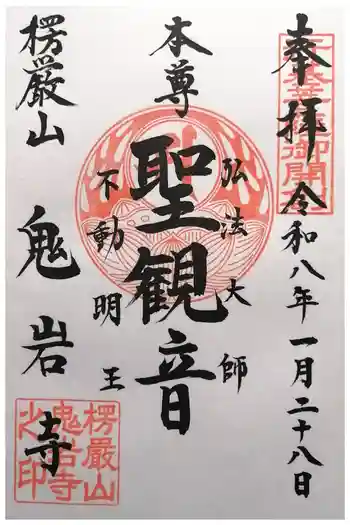 奉拝
令和八年一月二十八日
本尊
聖観音
弘法大師
不動明王
楞厳山
鬼岩寺
楞嚴山
鬼岩寺
之印